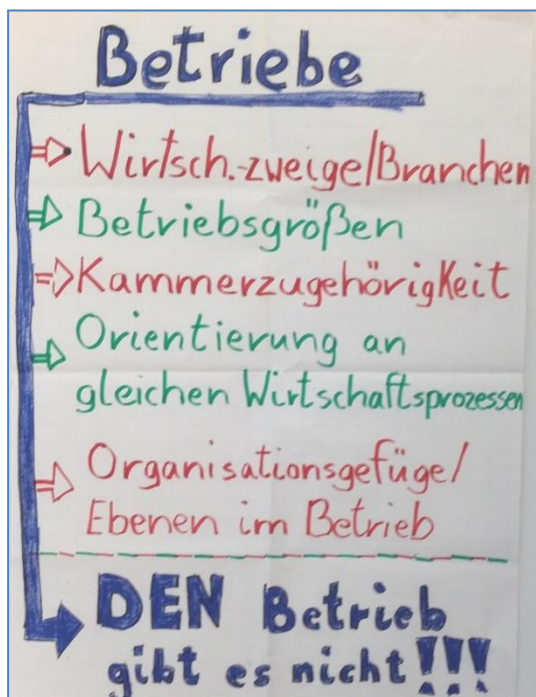 Betriebe
Wirtsch.-zweige/Branchen
Betriebsgrößen
Kammerzugehörigkeit
Orientierung an
gleichen Wirtschaftsprozessen
Organisationsgefüge/
Ebenen im Betrieb
DEN Betrieb
gibt es nicht!!!